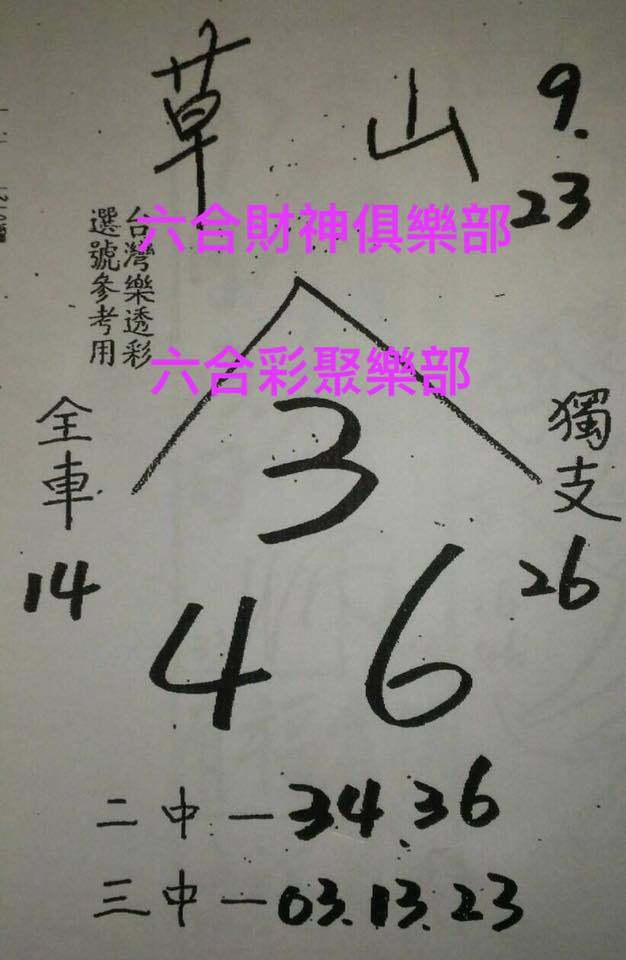 草 山
9.
23
六合財神俱樂部
台灣樂透彩
選號參考用
六合彩聚樂部
全車
14
獨支
26
3
4 6
二中一34.36
三中一03.13.23